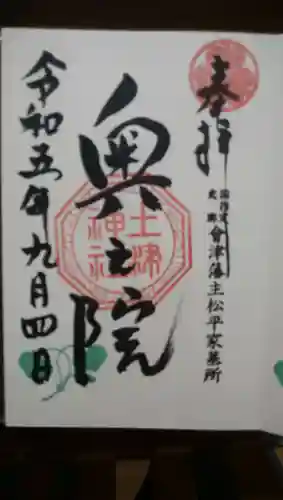 奉拝
國指定
史跡
會津藩主松平家墓所
奥之院
土津
神社
令和五年九月四日